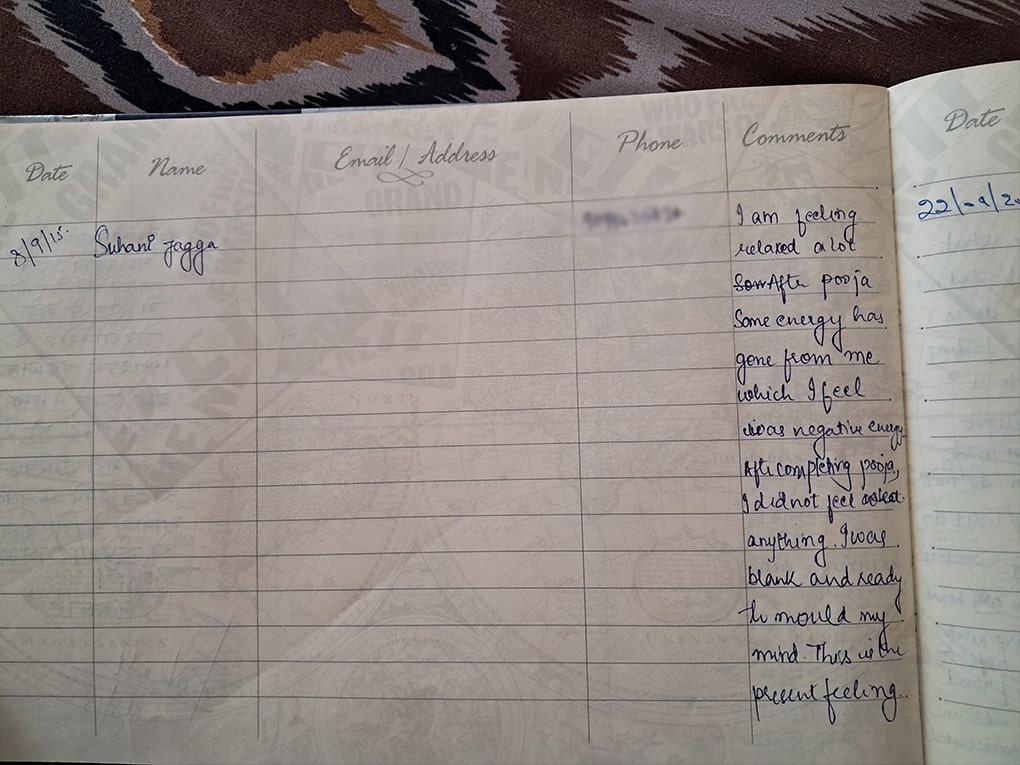 Date Name Email / Address Phone Comments Date
8/9/15. Suhani Jagga
I am feeling
relaxed a lot
After pooja
Some energy has
gone from me
which I feel
was negative energy
After completing pooja,
I did not feel
anything. I was
blank and ready
to mould my
mind. This is the
present feeling.
22/